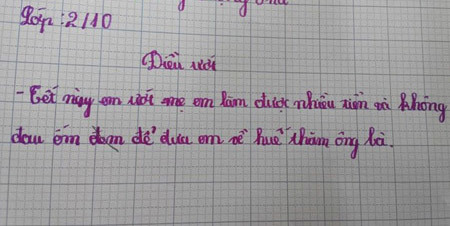 Lớp: 2/10
Điều ước
- Tết này em ước mẹ em làm được nhiều tiền và không
đau ốm để đưa em về huế thăm ông bà.